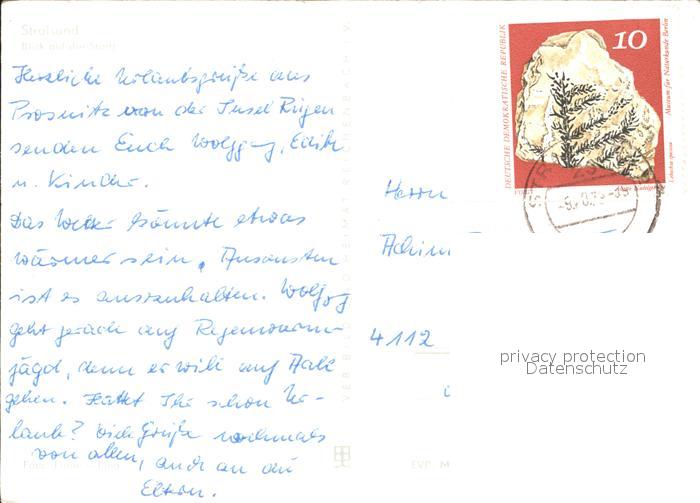 Stralsund
Blick auf die Stadt
Herzliche Urlaubsgrüße aus
Prosnitz von der Insel Rügen
senden Euch Wolfgang, Edith
u. Kinder.
Das Wetter könnte etwas
wärmer sein. Ansonsten
ist es auszuhalten. Wolfg
geht gerade auf Regenwurm-
jagd, denn er will auf Aale
gehen. Hattet Ihr schon Ur-
laub? Viele Grüße nochmals
von allen, auch an die
Eltern.
VEB BILD UND HEIMAT REICHENBACH I. V.
EVP M
DEUTSCHE DEMOKRATISCHE REPUBLIK
10
Museum für Naturkunde Berlin
Lebachia speciosa
STR
Herrn
Achim
4112
privacy protection
Datenschutz